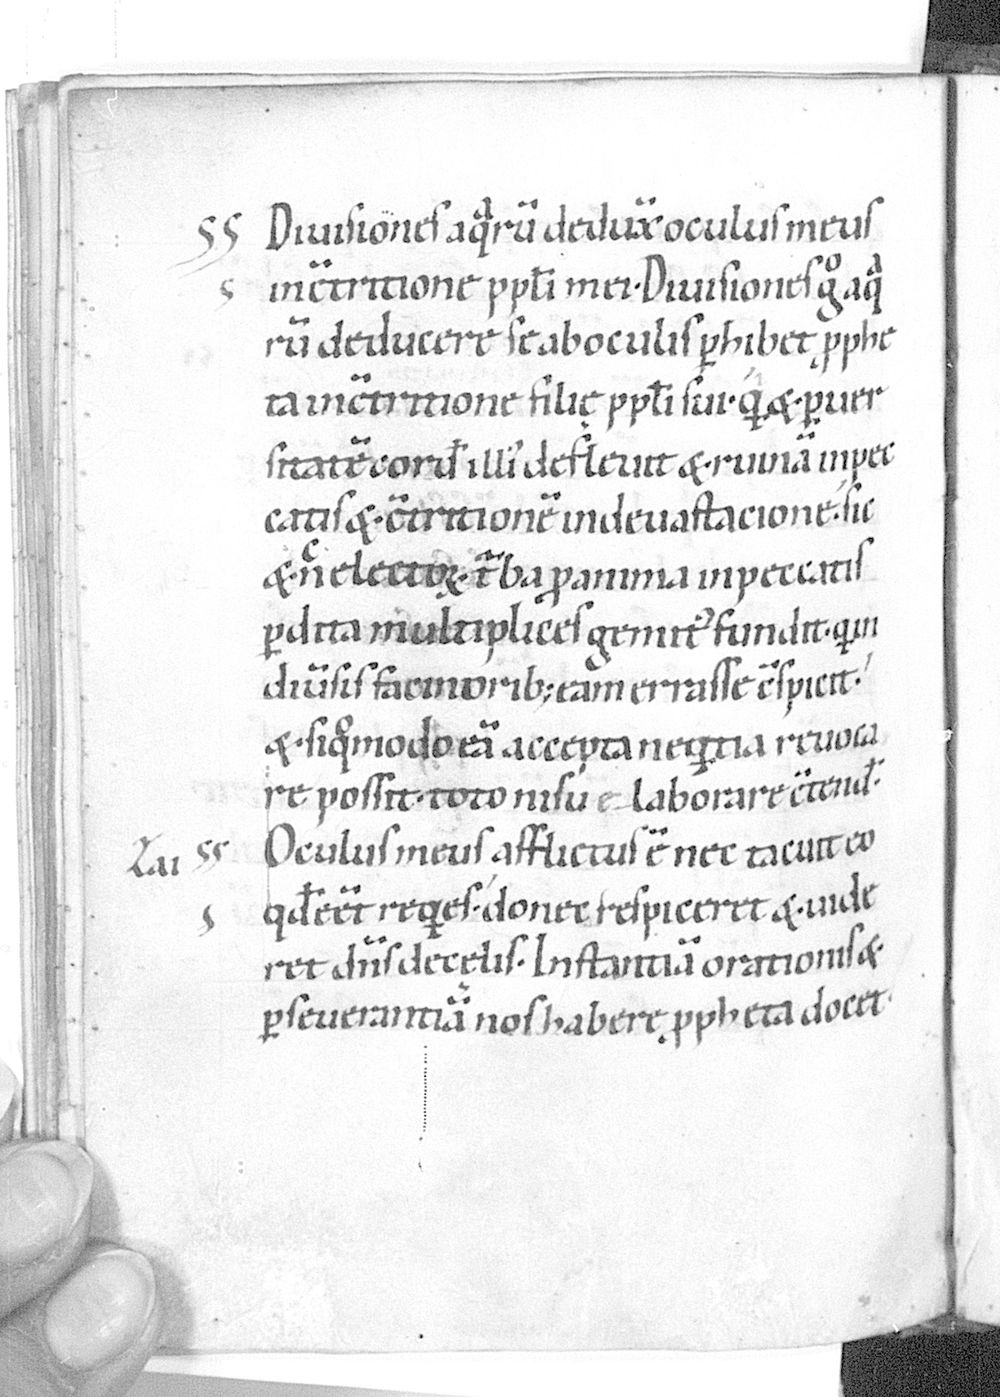 Diuisiones aqͣrū deduẍ oculus meus
in c̄tritione ppłi mei· Diuisiones gͦ aqͣ
rū deducere se ab oculis ꝑhibet ꝓphe
ta in c̄tritione filię ppłi sui· &· ꝑuer
sitatē cord̄ illiˀ defleuit &· ruinā in pec
catis &· c̄tritionē in deuastacione· sic
&· nͨ electoꝝ· t̄ba ꝓ anima in peccatis
ꝑdita multiplices gemitˀ fundit· qͥ in
diūsis facinorib; eam errasse c̄spicit·
&· si qͦmodo eā accepta neqͥtia reuoca
re possit· toto nisu laborare c̄tend̄·
Oculus meus afflictus ē nec tacuit eo
qđ eēt reqͥes· donec respiceret &· uide
ret dn̄s de cęlis· Instantiā orationis &·
ꝑseuerantiā nos habere ꝓpheta docet·